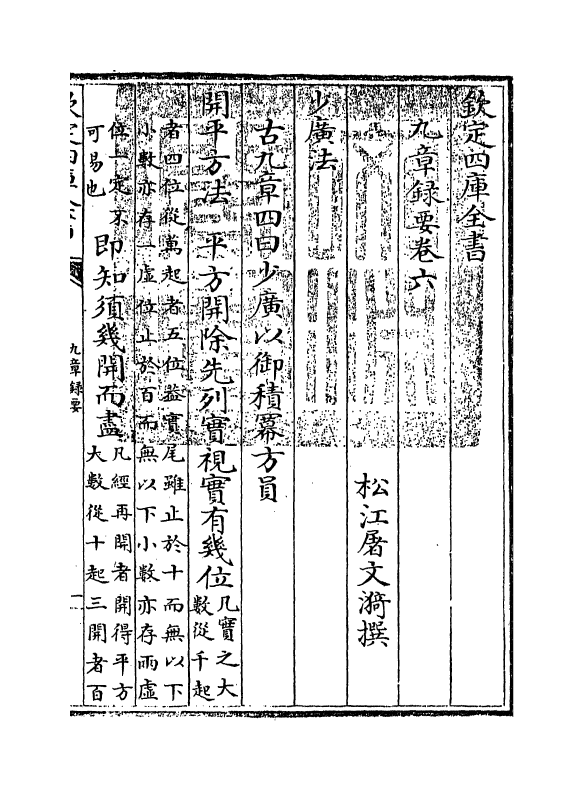 欽定四庫全書
九章錄要卷六
松江屠文漪撰
少廣法
古九章四曰少廣以御積冪方員
開平方法 平方開除先列實視實有幾位凡實之大
數從千起
者四位從萬起者五位葢實尾雖止於十而無以下
小數亦存一虛位止於百而無以下小數亦存兩虛
位一定不
可易也
即知須幾開而盡
凡經再開者開得平方
大數從十起三開者百
九章錄要
一